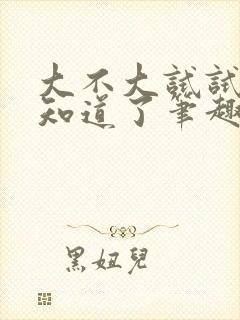 大不大試試
知道了筆趣
黑妞兒